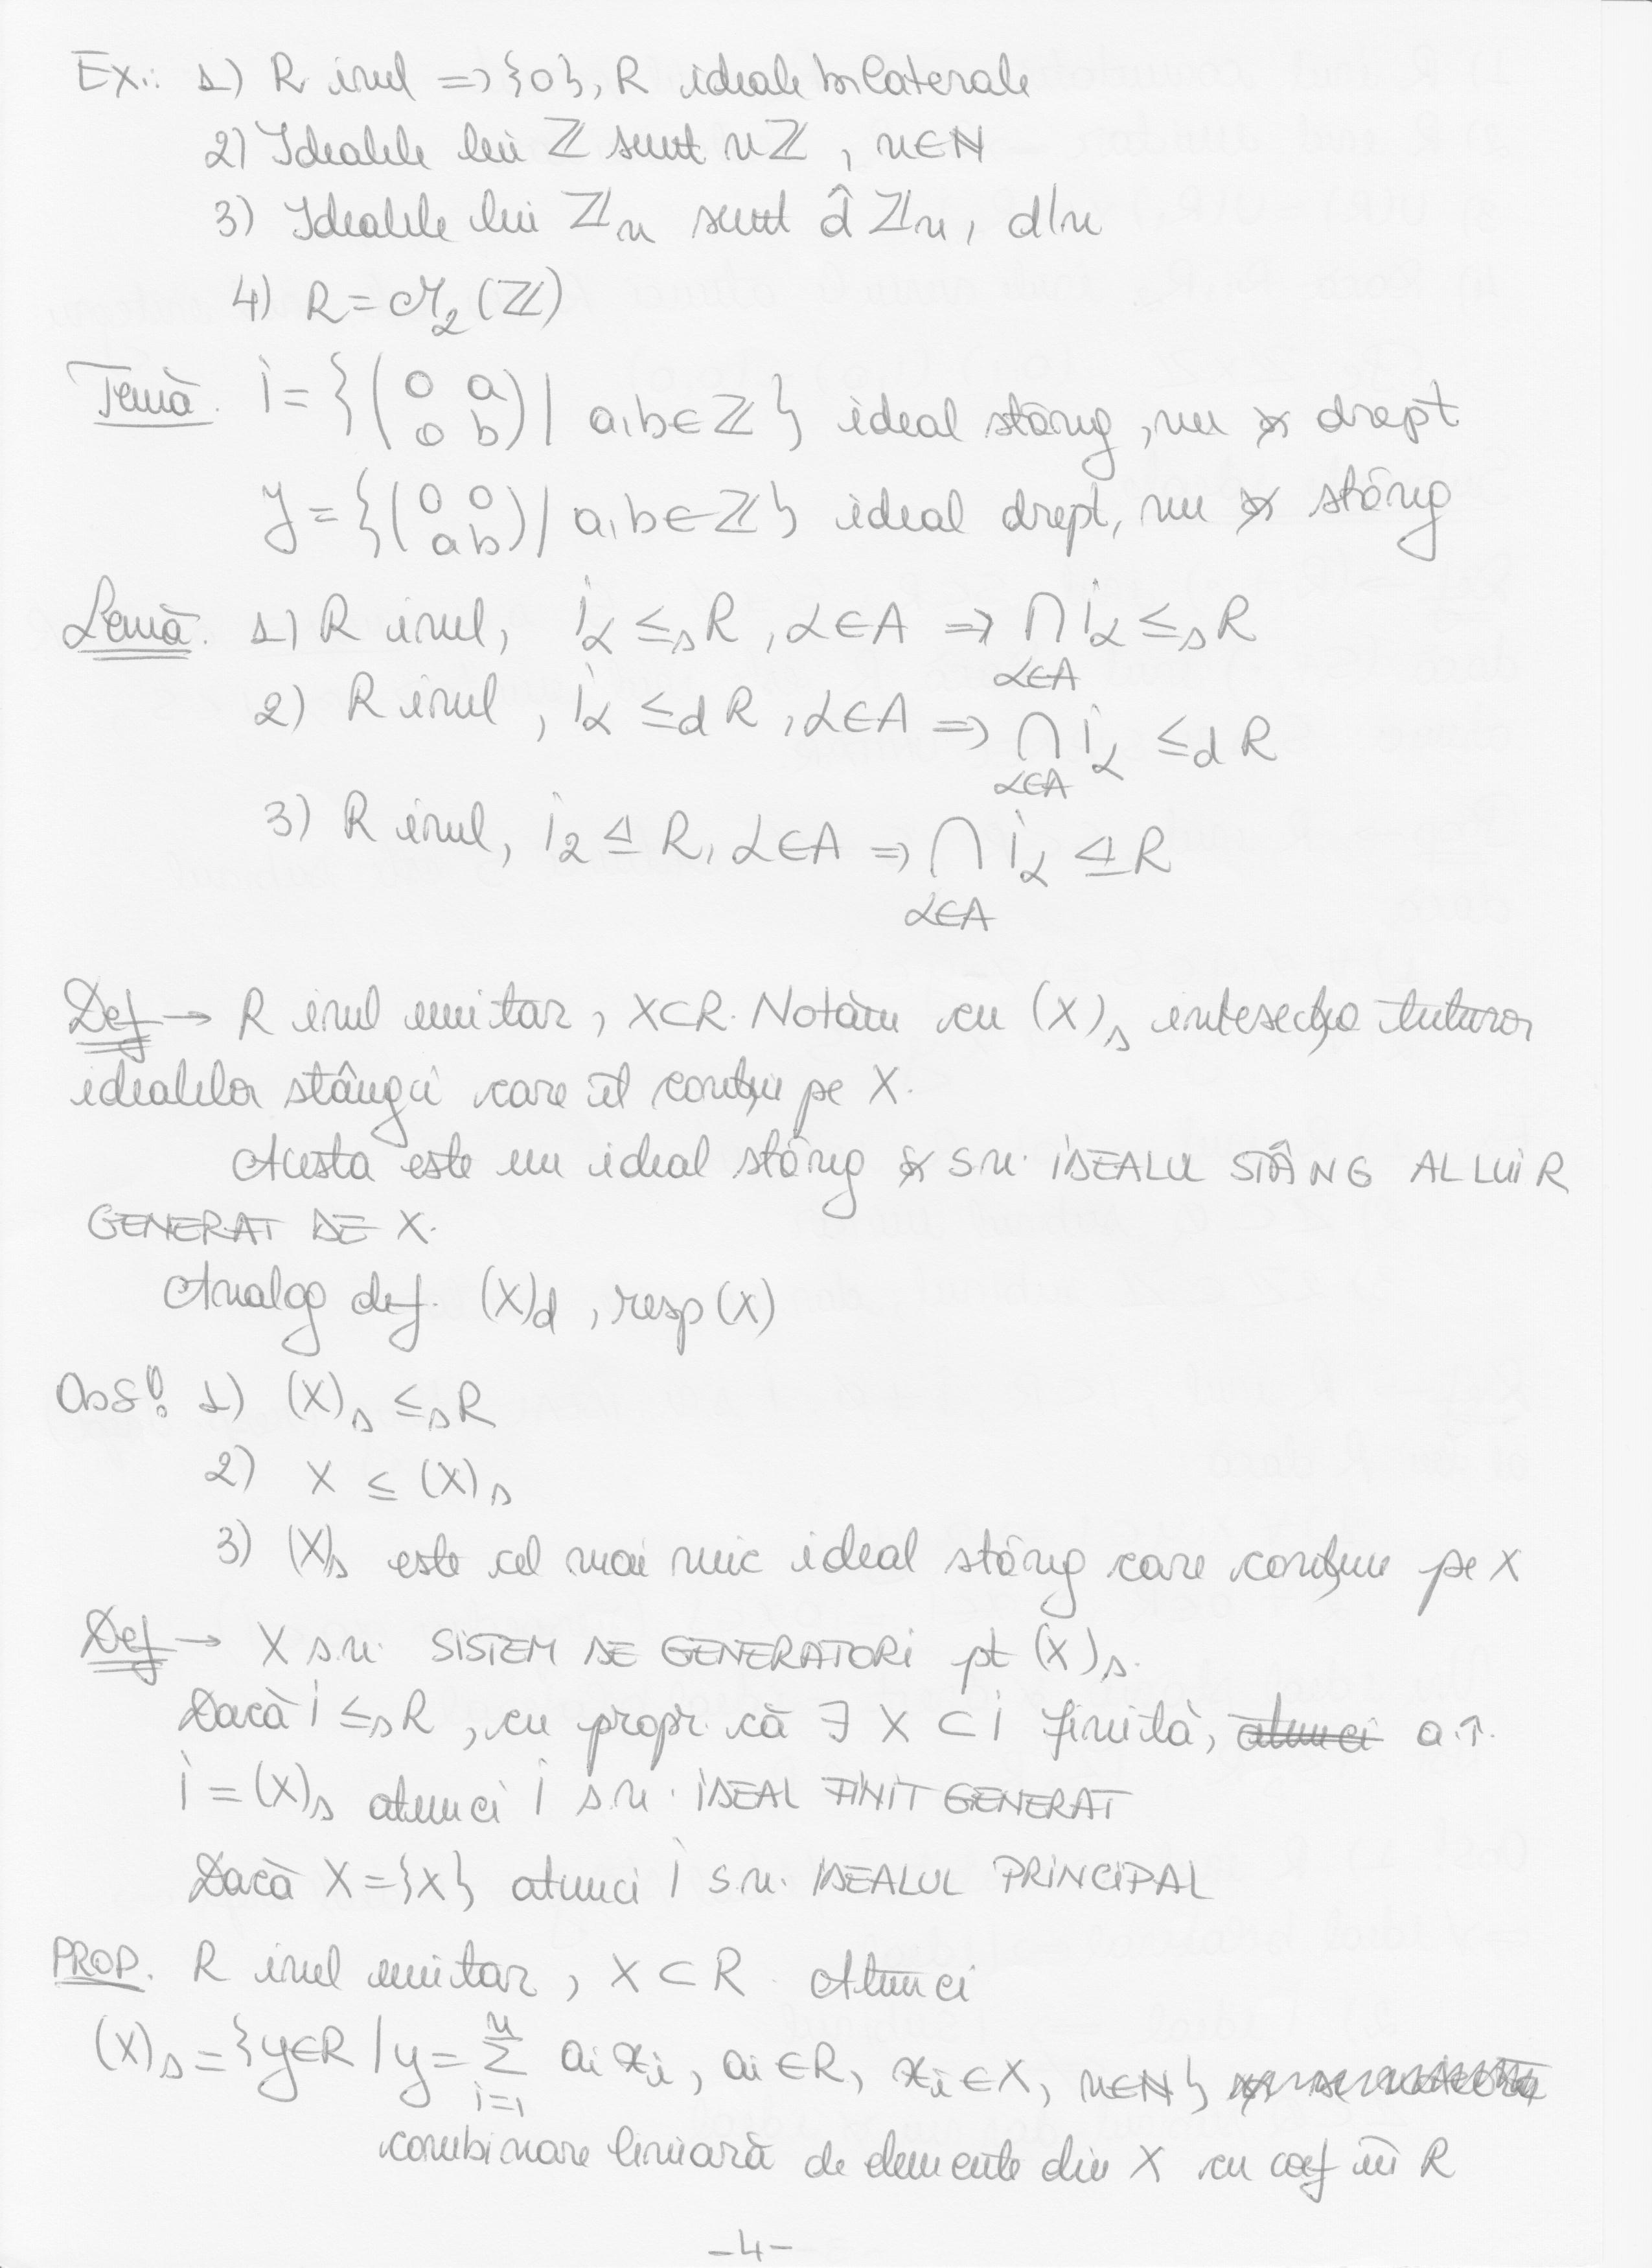 Ex.: 1) R inel => {0}, R ideale bilaterale
2) Idealele lui ℤ sunt nℤ, n∈ℕ
3) Idealele lui ℤn sunt d̂ ℤn, d|n
4) R = M₂(ℤ)
Temă. I = {(0 a
0 b) | a,b∈ℤ} ideal stâng, nu drept
J = {(0 0
a b) | a,b∈ℤ} ideal drept, nu stâng
Lemă. 1) R inel, Iα ≤s R, α∈A => ⋂ Iα ≤s R
α∈A
2) R inel, Iα ≤d R, α∈A => ⋂ Iα ≤d R
α∈A
3) R inel, Iα ⊴ R, α∈A => ⋂ Iα ⊴ R
α∈A
Def → R inel unitar, X⊂R. Notăm cu (X)s intesecția tuturor
idealelor stângi care îl conțin pe X.
Acesta este un ideal stâng s.n. IDEALU STÂNG AL LUI R
GENERAT DE X.
Analog def. (X)d, resp (X)
Obs! 1) (X)s ≤s R
2) X ≤ (X)s
3) (X)s este cel mai mic ideal stâng care conține pe X
Def → X s.n. SISTEM DE GENERATORI pt (X)s.
Dacă I ≤s R, cu propr. că ∃ X ⊂ I finită, atunci a.î.
I = (X)s atunci I s.n. IDEAL FINIT GENERAT
Dacă X = {x} atunci I s.n. IDEALUL PRINCIPAL
PROP. R inel unitar, X ⊂ R. Atunci
(X)s = {y∈R | y = n∑i=1 ai xi, ai∈R, xi∈X, n∈ℕ}
combinare liniară de elemente din X cu coef în R
-4-